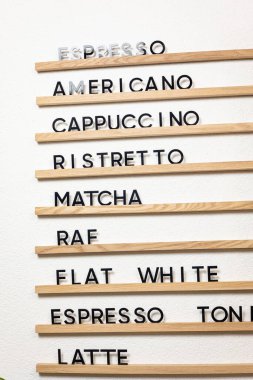 ESPRESSO
AMERICANO
CAPPUCCINO
RISTRETTO
MATCHA
RAF
FLAT WHITE
ESPRESSO TONI
LATTE